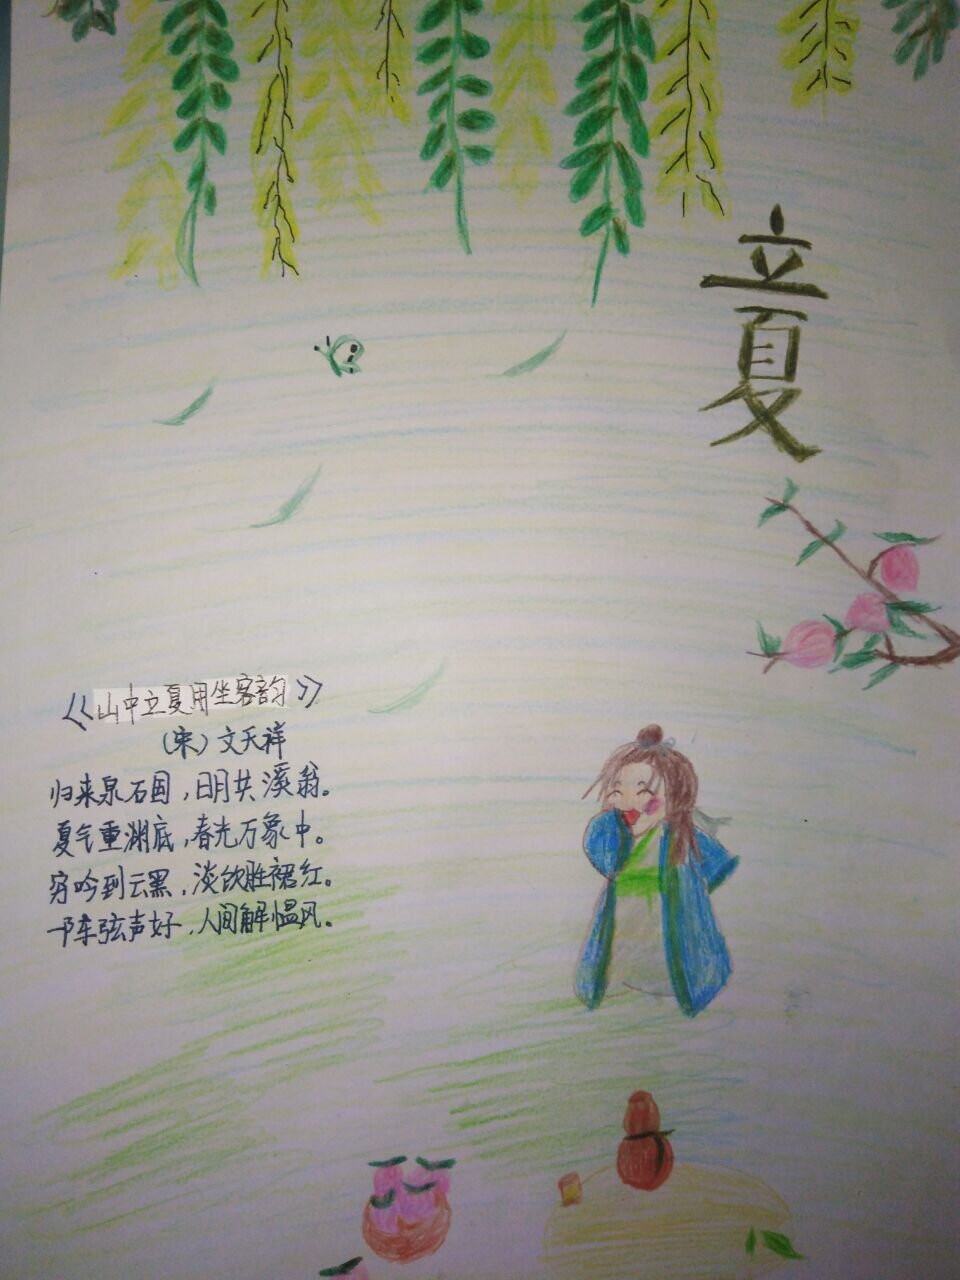 立夏
《山中立夏用坐客韵》
（宋）文天祥
归来泉石国，日月共溪翁。
夏气重渊底，春光万象中。
穷吟到云黑，淡饮胜裙红。
一阵弦声好，人间解愠风。